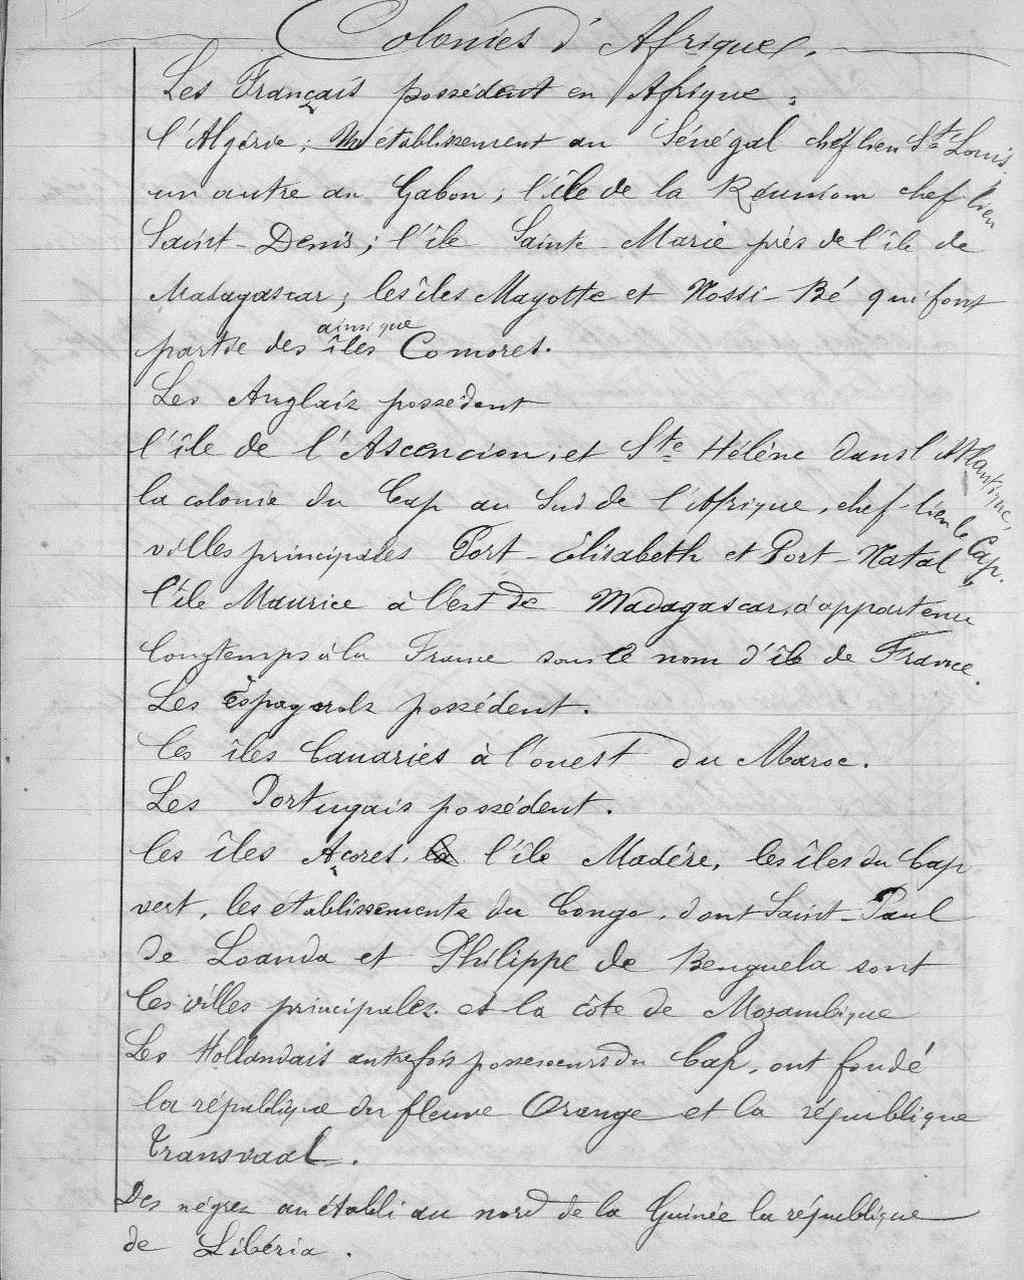 Colonies d'Afrique.
Les Français possèdent en Afrique :
l'Algérie ; Un établissement au Sénégal chef lieu St Louis,
un autre au Gabon ; l'île de la Réunion chef-lieu
Saint-Denis ; l'île Sainte-Marie près de l'île de
Madagascar ; les îles Mayotte et Nossi-Bé qui font
partie des îles ainsi que Comores.
Les Anglais possèdent
l'île de l'Ascencion, et Ste Hélène dans l'Atlantique,
la colonie du Cap au Sud de l'Afrique, chef-lieu le Cap.
villes principales Port-Élisabeth et Port-Natal
l'île Maurice à l'est de Madagascar, a appartenu
longtemps à la France sous le nom d'île de France.
Les Espagnols possédent.
les îles Canaries à l'ouest du Maroc.
Les Portugais possédent.
les îles Açores, la l'île Madère, les îles du Cap
vert, les établissements du Congo, dont Saint-Paul
de Loanda et Philippe de Benguela sont
les villes principales et la côte de Mozambique
Les Hollandais autrefois possesseurs du Cap, ont fondé
la république du fleuve Orange et la république
Transvaal.
Des nègres on établi au nord de la Guinée la république
de Libéria.